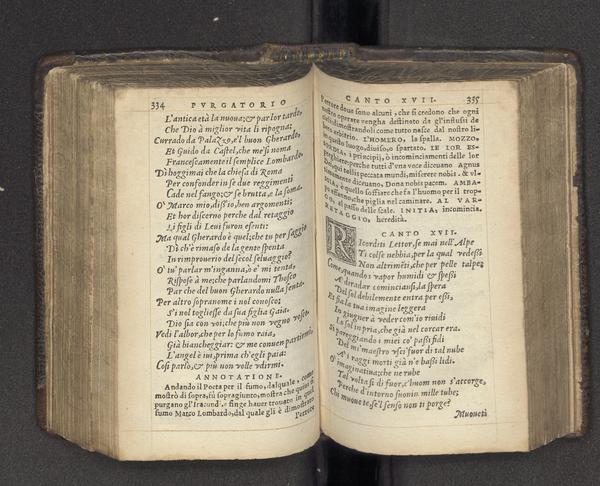 334 PVRGATORIO
L'antica età la nuoua; & par lor tardo,
Che Dio à miglior vita li ripogna;
Currado da Palazzo, e'l buon Gherardo,
Et Guido da Castel, che me si noma
Francescamente il semplice Lombardo.
Dì hoggimai che la chiesa di Roma
Per confonder in se due reggimenti
Cade nel fango; & se brutta, e la soma.
O' Marco mio, diss'io, ben argomenti;
Et hor discerno perche dal retaggio
Li figli di Leui furon esenti:
Ma qual Gherardo è quel; che tu per saggio
Dì ch'è rimaso de la gente spenta
In rimprouerio del secol seluaggio?
O' tu' parlar m'inganna, ò e' mi tenta,
Rispose à me; che parlandomi Thosco
Par che del buon Gherardo nulla senta.
Per altro sopranome i nol conosco;
S'i nol togliesse da sua figlia Gaia.
Dio sia con voi; che più non vegno vosco.
Vedi l'albor, che per lo fumo raia,
Già biancheggiar: & me conuen partirmi,
L'angel è iui, prima ch'egli paia:
Così parlò, & più non volle vdirmi.
ANNOTATIONE.
Andando il Poeta per il fumo, dal quale, come
mostrò di sopra, fù sopragiunto, mostra che quiui si
purgano gl'iracund', e finge hauer trouato in quel
fumo Marco Lombardo, dal quale gli è dimostrato
l'errore
CANTO XVII. 335
l'errore doue sono alcuni, che si credono che ogni
nostro operare vengha destinato da gl'influssi de
cieli, dimostrandoli come tutto nasce dal nostro li-
bero arbitrio. L'HOMERO, la spalla. MOZZO,
questo luogo, diuiso, o spartato. LE IOR ES-
principij, ò incominciamenti delle lor
preghiere; perche tutti d'vna voce diceuano Agnus
Dei, qui tollis peccata mundi, miserere nobis. & vl-
timamente diceuano, Dona nobis pacem. AMBA-
è quello soffiare che fa l'huomo per il trop-
po affanno, che piglia nel caminare. AL VAR-
CO, al passo delle scale. INITIA, incomincia.
RETAGGIO, heredità.
CANTO XVII.
Ricorditi Lettor, se mai nell'Alpe
Ti colse nebbia, per la qual vedessi
Non altrimẽti, che per pelle talpe;
Come, quando i vapor humidi & spessi
A' diradar cominciansi, la spera
Del sol debilemente entra per essi,
Et fia la tua imagine leggera
In giugner à veder com'io riuidi
Lo sol in pria, che già nel corcar era.
Si pareggiando i miei co' passi fidi
Del mi' maestro vsci' fuor di tal nube
A' i raggi morti già n'e bassi lidi.
O' imaginatiua; che ne rube
Tal volta sì di fuor, c'huom non s'accorge,
Perche d'intorno suonin mille tube;
Chi muoue te, se'l senso non ti porge?
Muoueti